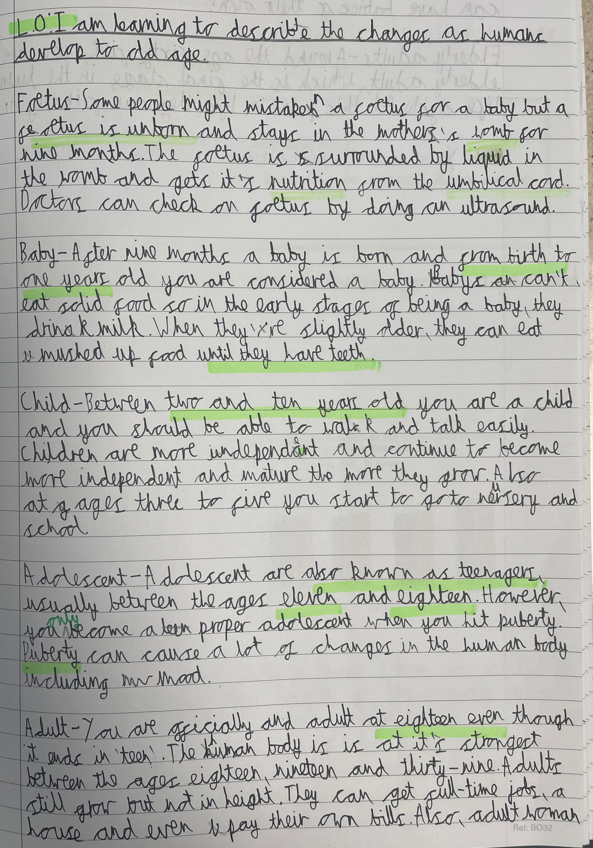 L.O:I am learning to describe the changes as humans
develop to old age.
Foetus-Some people might mistaken a foetus for a baby but a
foetus is unborn and stays in the mothers's womb for
nine months. The foetus is surrounded by liquid in
the womb and gets it's nutrition from the umbilical cord.
Doctors can check on foetus by doing an ultrasound.
Baby-After nine months a baby is born and from birth to
one years old you are considered a baby. Babys can't
eat solid food so in the early stages of being a baby, they
drink milk. When they're slightly older, they can eat
mushed up food until they have teeth.
Child-Between two and ten years old you are a child
and you should be able to walk and talk easily.
Children are more independant and continue to become
more independent and mature the more they grow. Also
at ages three to five you start to go to nursery and
school.
Adolescent-Adolescent are also known as teenagers,
usually between the ages eleven and eighteen. However,
you only become a proper adolescent when you hit puberty.
Puberty can cause a lot of changes in the human body
including mood.
Adult-You are officially and adult at eighteen even though
it ends in 'teen'. The human body is is at it's strongest
between the ages eighteen, nineteen and thirty-nine. Adults
still grow but not in height. They can get full-time jobs, a
house and even pay their own bills. Also, adult woman
Ref: BO32